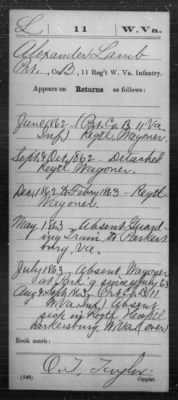 L 11 W.Va.
Alexander Lamb
Pvt., Co. B, 11 Reg't W. Va. Infantry.
Appears on Returns as follows:
June 1862 (Pvt. Co. B 11 Va
Inf) Regtl Wagoner
Sept & Oct, 1862 - Detached
Regtl Wagoner.
Dec, 1862 to Febry 1863 - Regtl
Wagoner.
May 1863 - Absent Guard-
ing Train to Parkers
burg, Va.
July 1863 - Absent Wagoner
at Park'g since July 63
Aug & Sept 1863 Pvt Co B 11
W Va Inf) Absent
sick in Regtl Hospital
Parkersburg W Va
Book mark:
(546) Copyist.